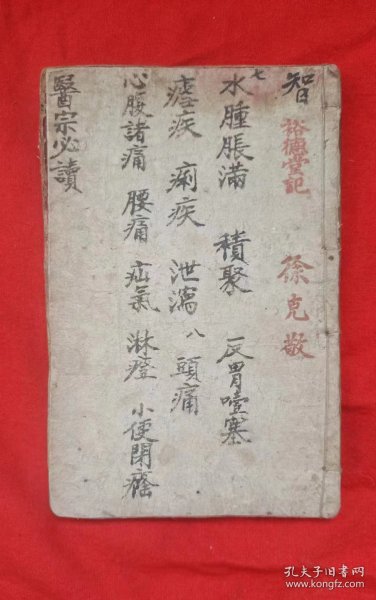 智
裕德堂記 徐克敬
七
水腫脹滿 積聚 反胃噎塞
瘧疾 痢疾 泄瀉 八 頭痛
心腹諸痛 腰痛 疝氣 淋證 小便閉癃
醫宗必讀
孔夫子旧书网
www.kongfz.com